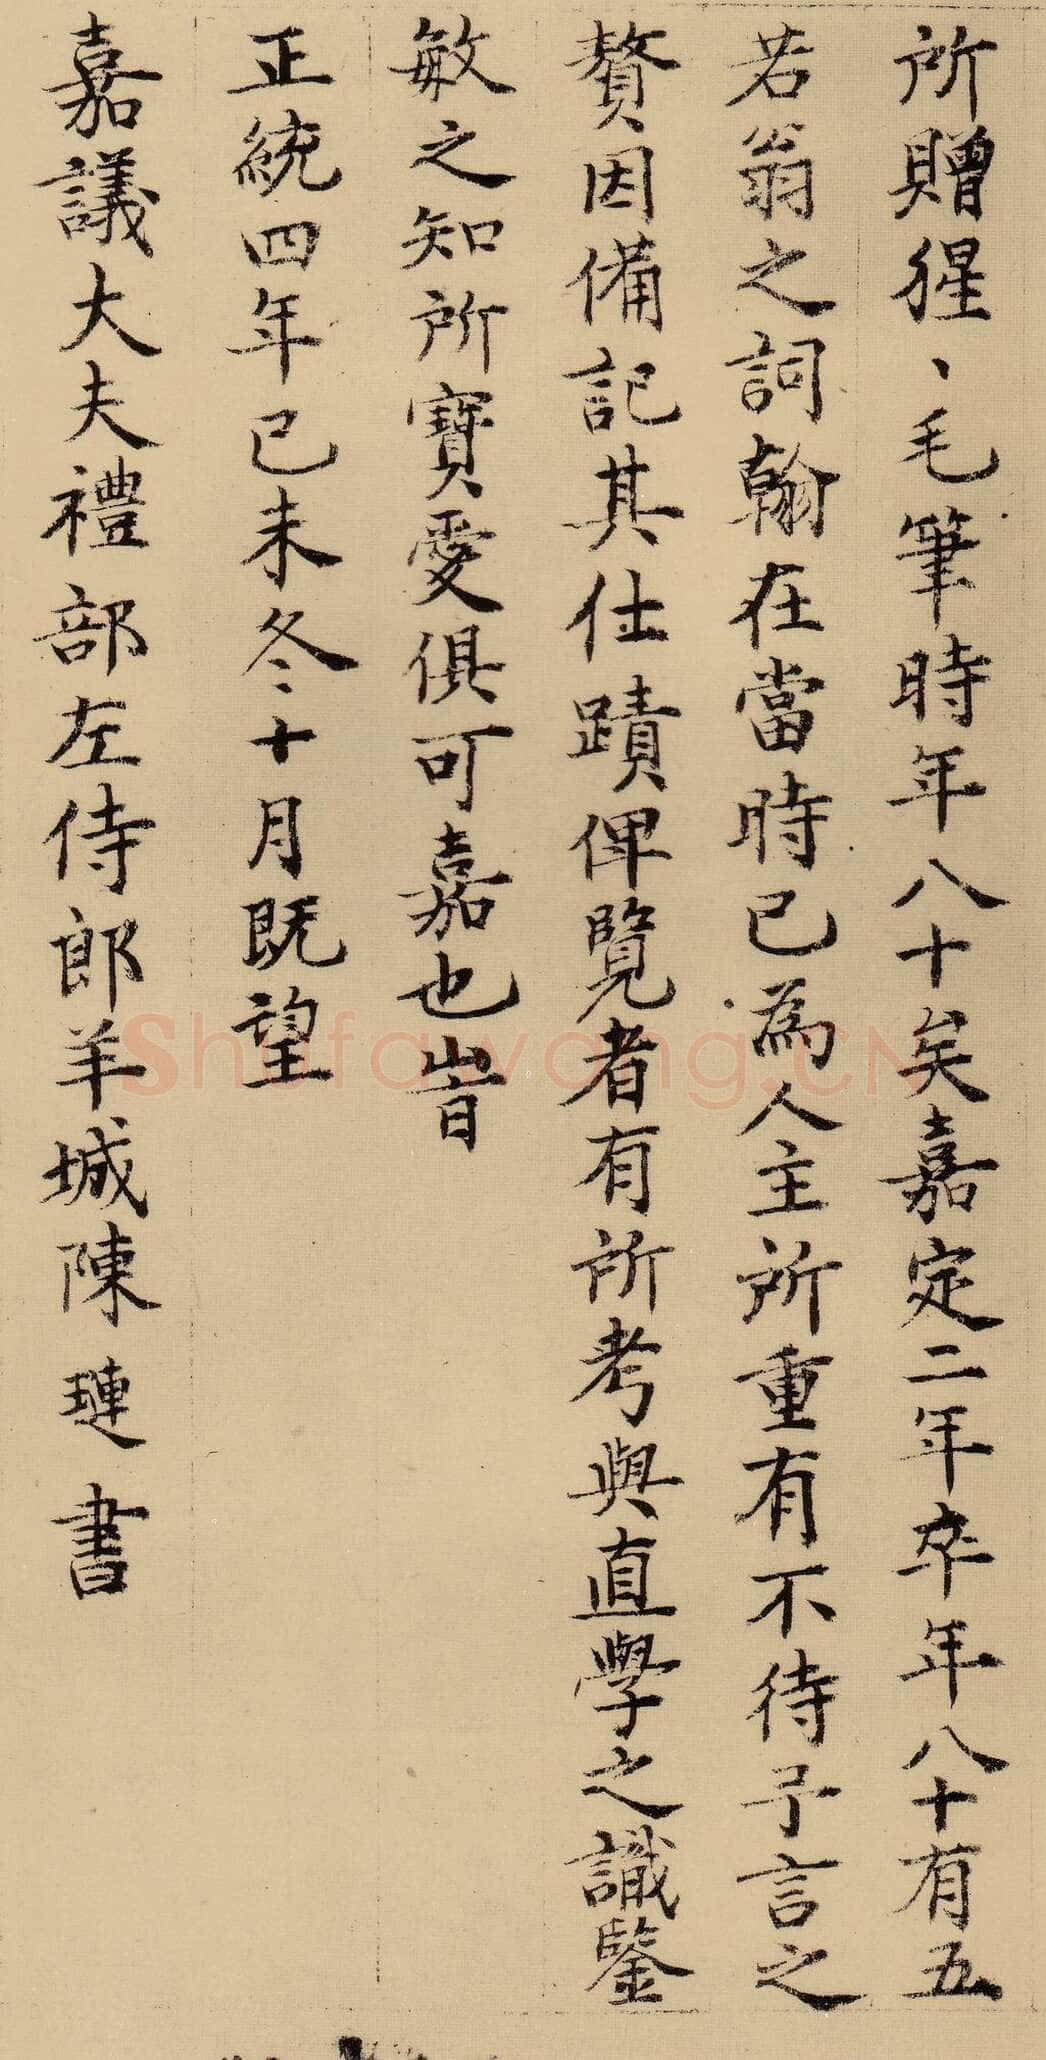 所贈猩、毛筆時年八十矣嘉定二年卒年八十有五
若翁之詞翰在當時已為人主所重有不待予言之
贅因備記其仕蹟俾覽者有所考與直學之識鑒
敏之知所寶愛俱可嘉也旹
正統四年己未冬十月既望
嘉議大夫禮部左侍郎羊城陳璉書
Shufawang.CN